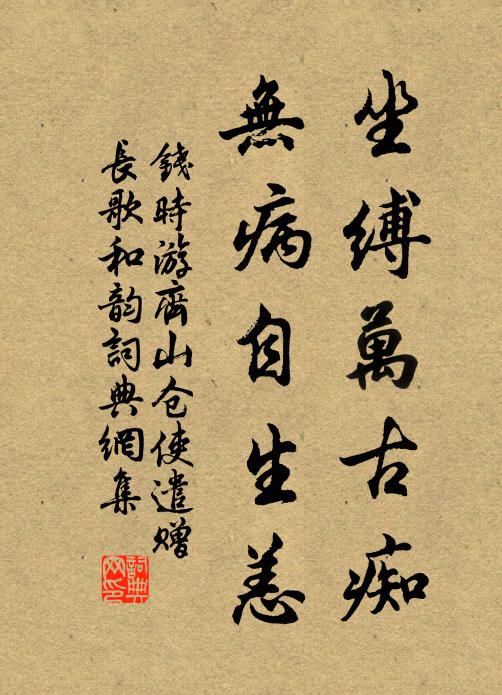 坐縛萬古痴
無病自生恙
錢時游齊山仓使遣赠
長歌和韵詞典網集
詞典网印